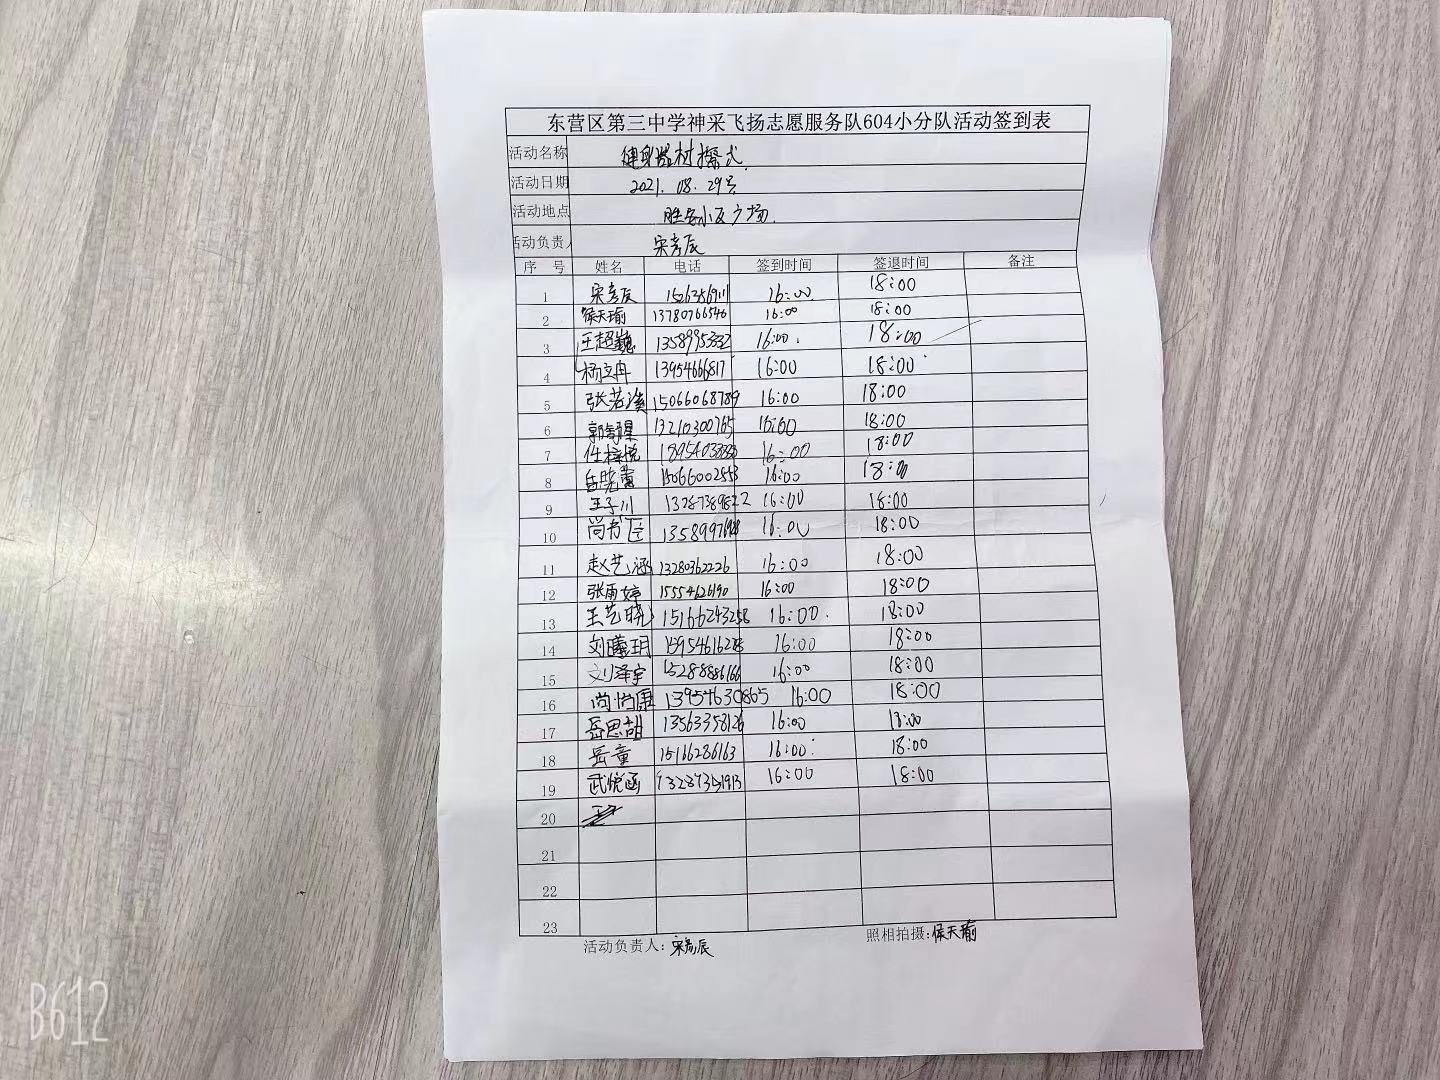 东营区第三中学神采飞扬志愿服务队604小分队活动签到表
活动名称 健身器材擦式
活动日期 2021.08.29号
活动地点 小区广场
活动负责人 宋彦辰
序号 姓名 电话 签到时间 签退时间 备注
1 宋彦辰 16:00 18:00
2 侯天瑜 13780766546 16:00 18:00
3 王超巍 16:00 18:00
4 杨文冉 13954666817 16:00 18:00
5 张若溪 15066068789 16:00 18:00
6 13210300765 16:00 18:00
7 任梓悦 16:00 18:00
8 15066002553 16:00 18:00
9 王子川 16:00 18:00
10 尚书臣 16:00 18:00
11 赵艺涵 13280362226 16:00 18:00
12 张雨婷 15554626190 16:00 18:00
13 王艺晓 15166243258 16:00 18:00
14 刘曦玥 16:00 18:00
15 刘泽宇 15288886166 16:00 18:00
16 尚尚康 13954630865 16:00 18:00
17 岳思甜 13563358126 16:00 18:00
18 岳童 15166286163 16:00 18:00
19 武悦涵 16:00 18:00
20
21
22
23
活动负责人:宋彦辰 照相拍摄:侯天瑜
B612